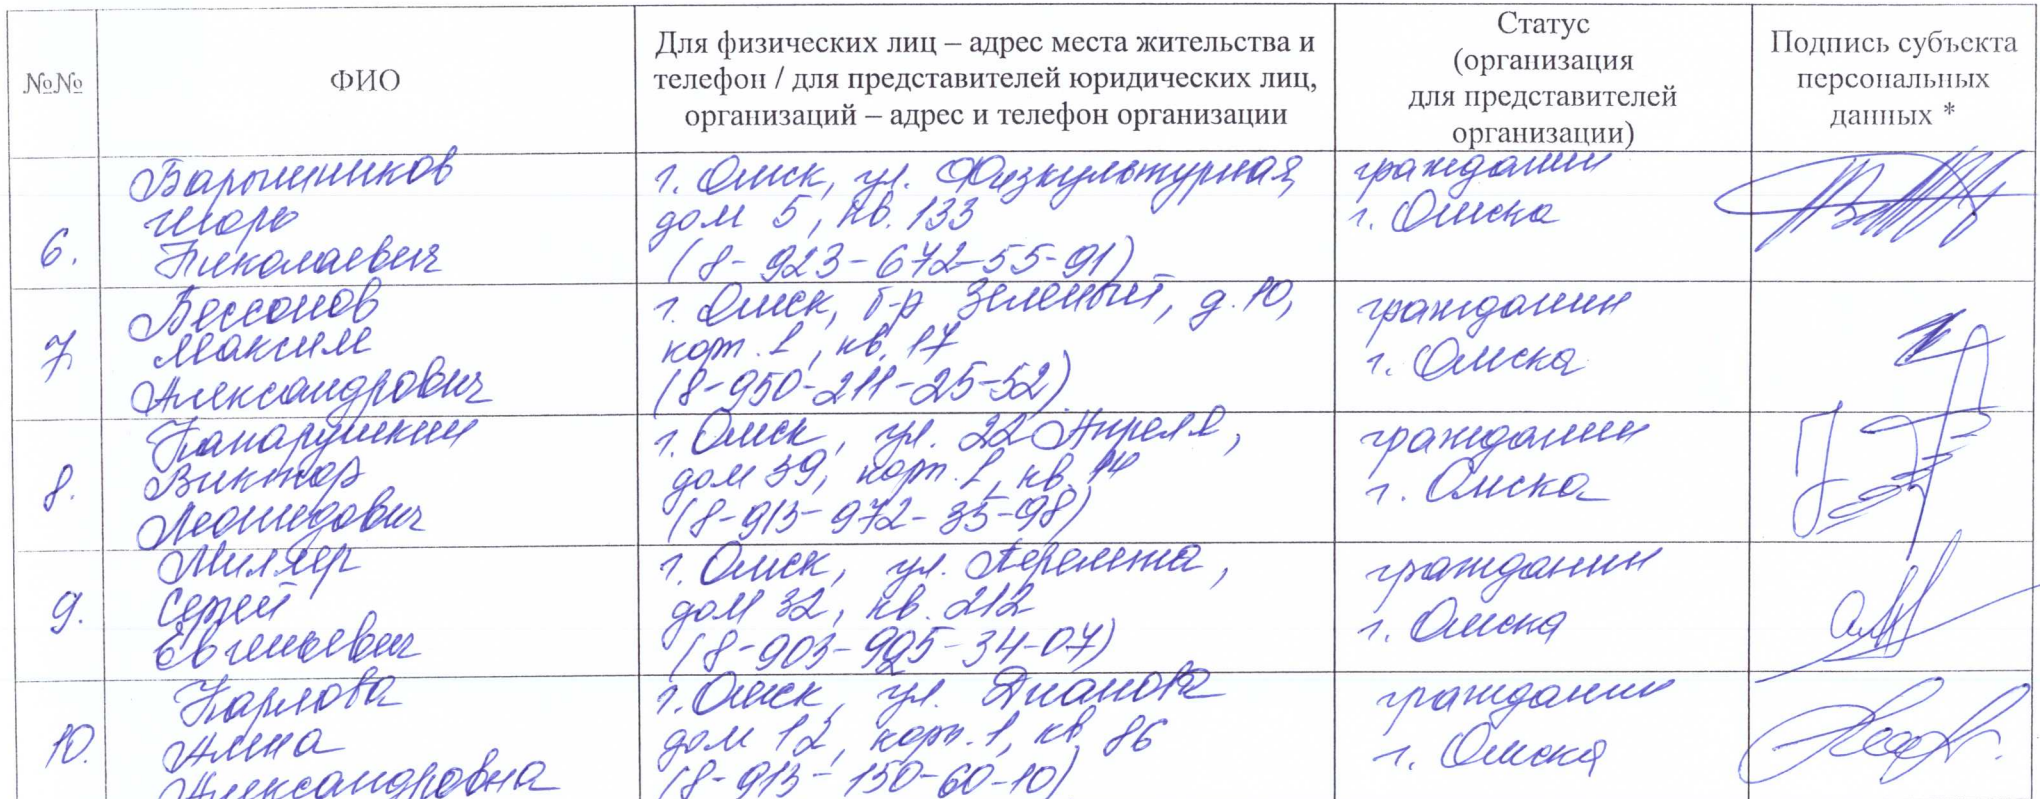 №№
ФИО
Для физических лиц – адрес места жительства и
телефон / для представителей юридических лиц,
организаций – адрес и телефон организации
Статус
(организация
для представителей
организации)
Подпись субъекта
персональных
данных *
6.
Барышников
Игорь
Николаевич
г. Омск, ул. Физкультурная,
дом 5, кв. 133
(8-923-672-55-91)
гражданин
г. Омска
7.
Бессонов
Максим
Александрович
г. Омск, б-р Зеленый, д. 10,
корп. 1, кв. 17
(8-950-211-25-52)
гражданин
г. Омска
8.
Виктор
Леонидович
г. Омск, ул. 22 Апреля,
дом 39, корп. 1, кв. 14
(8-913-972-35-98)
гражданин
г. Омска
9.
Миллер
Сергей
Евгеньевич
г. Омск, ул. Перелета,
дом 32, кв. 212
(8-903-995-34-07)
гражданин
г. Омска
10.
Карлова
Алина
Александровна
г. Омск, ул. Дианова
дом 12, корп. 1, кв 86
(8-913-150-60-10)
гражданин
г. Омска